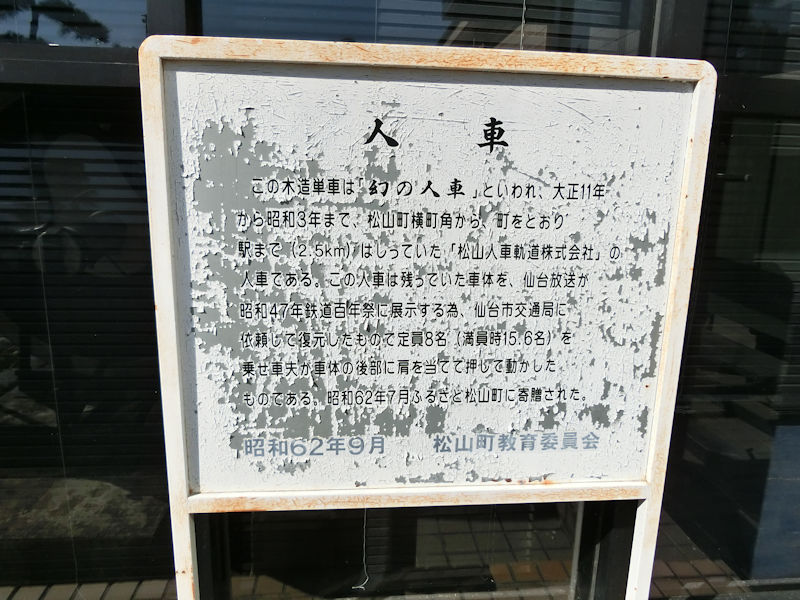 人車
この木造単車は「幻の人車」といわれ、大正11年
から昭和3年まで、松山町横町角から、町をとおり
駅まで（2.5km）はしっていた「松山人車軌道株式会社」の
人車である。この人車は残っていた車体を、仙台放送が
昭和47年鉄道百年祭に展示する為、仙台市交通局に
依頼して復元したもので定員8名（満員時15.6名）を
乗せ車夫が車体の後部に肩を当てて押して動かした
ものである。昭和62年7月ふるさと松山町に寄贈された。
昭和62年9月　松山町教育委員会